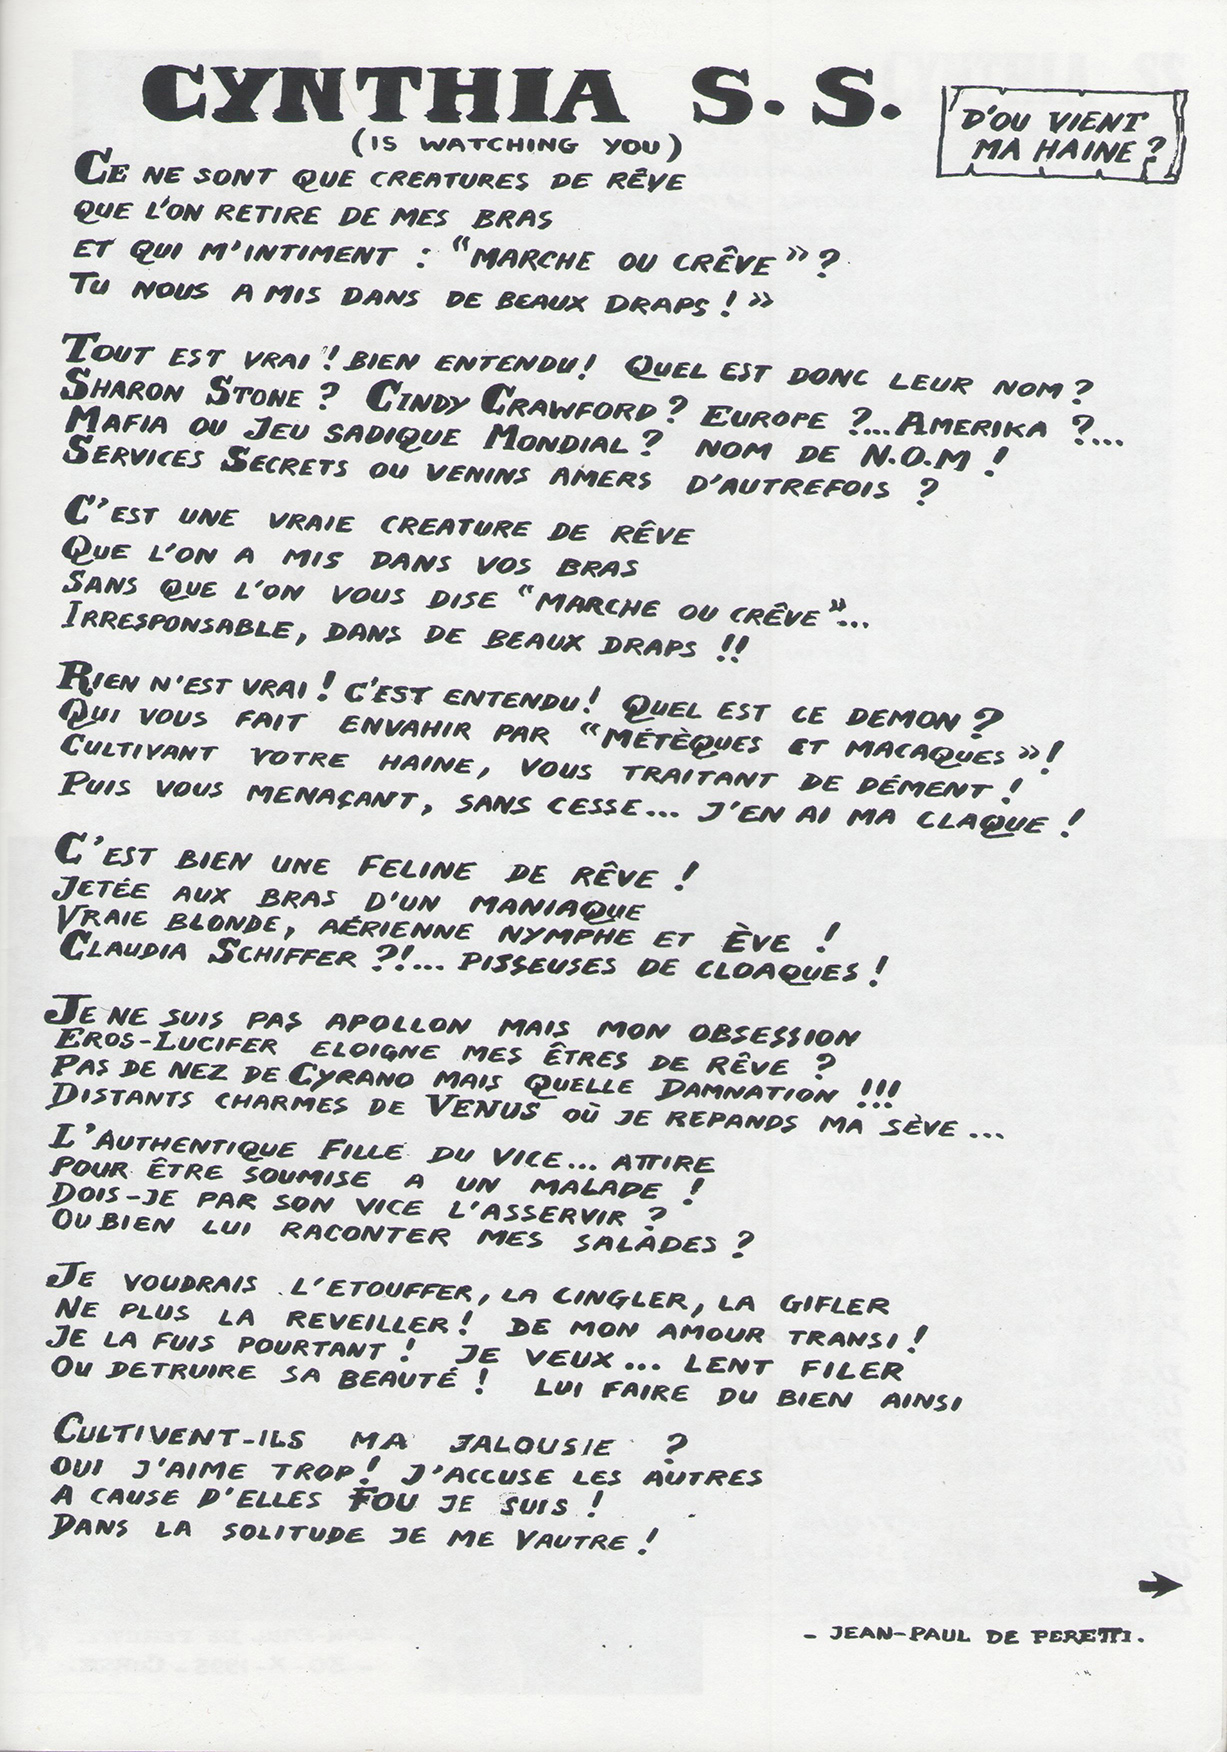 CYNTHIA S. S.
(IS WATCHING YOU)
D'OU VIENT
MA HAINE ?
CE NE SONT QUE CREATURES DE RÊVE
QUE L'ON RETIRE DE MES BRAS
ET QUI M'INTIMENT : "MARCHE OU CRÊVE" ?
TU NOUS A MIS DANS DE BEAUX DRAPS ! »
TOUT EST VRAI ! BIEN ENTENDU ! QUEL EST DONC LEUR NOM ?
SHARON STONE ? CINDY CRAWFORD ? EUROPE ?... AMERIKA ?...
MAFIA OU JEU SADIQUE MONDIAL ? NOM DE N.O.M !
SERVICES SECRETS OU VENINS AMERS D'AUTREFOIS ?
C'EST UNE VRAIE CREATURE DE RÊVE
QUE L'ON A MIS DANS VOS BRAS
SANS QUE L'ON VOUS DISE "MARCHE OU CRÊVE"...
IRRESPONSABLE, DANS DE BEAUX DRAPS !!
RIEN N'EST VRAI ! C'EST ENTENDU ! QUEL EST CE DEMON ?
QUI VOUS FAIT ENVAHIR PAR "MÉTÈQUES ET MACAQUES" !
CULTIVANT VOTRE HAINE, VOUS TRAITANT DE DÉMENT !
PUIS VOUS MENAÇANT, SANS CESSE... J'EN AI MA CLAQUE !
C'EST BIEN UNE FELINE DE RÊVE !
JETÉE AUX BRAS D'UN MANIAQUE
VRAIE BLONDE, AÉRIENNE NYMPHE ET ÈVE !
CLAUDIA SCHIFFER ?!... PISSEUSES DE CLOAQUES !
JE NE SUIS PAS APOLLON MAIS MON OBSESSION
EROS-LUCIFER ELOIGNE MES ÊTRES DE RÊVE ?
PAS DE NEZ DE CYRANO MAIS QUELLE DAMNATION !!!
DISTANTS CHARMES DE VENUS OÙ JE REPANDS MA SÈVE ...
L'AUTHENTIQUE FILLE DU VICE... ATTIRE
POUR ÊTRE SOUMISE A UN MALADE !
DOIS-JE PAR SON VICE L'ASSERVIR ?
OU BIEN LUI RACONTER MES SALADES ?
JE VOUDRAIS L'ETOUFFER, LA CINGLER, LA GIFLER
NE PLUS LA REVEILLER ! DE MON AMOUR TRANSI !
JE LA FUIS POURTANT ! JE VEUX... LENT FILER
OU DETRUIRE SA BEAUTÉ ! LUI FAIRE DU BIEN AINSI
CULTIVENT-ILS MA JALOUSIE ?
OUI J'AIME TROP ! J'ACCUSE LES AUTRES
A CAUSE D'ELLES FOU JE SUIS !
DANS LA SOLITUDE JE ME VAUTRE !
- JEAN-PAUL DE PERETTI.